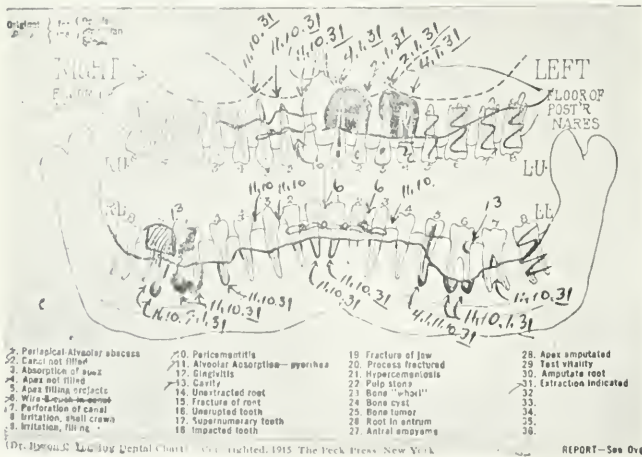 Original
RIGHT LEFT
FLOOR OF
POST'R
NARES
11.10.31 11.10.31 11.10.31 4.1.31 2.1.31 2.1.31 4.1.31
L.U.
11.10 11.10 6 6 11.10. 13
LL
11.10.31 11.10.31 11.10.31 4.1.11.10.31 11.10.1.31 11.10.31
1. Periapical-Alveolar abscess
2. Canal not filled
3. Absorption of apex
4. Apex not filled
5. Apex filling projects
6. Wire-Broach in canal
7. Perforation of canal
8. Irritation, shell crown
9. Irritation, filling
10. Pericementitis
11. Alveolar Absorption—pyorrhea
12. Gingivitis
13. Cavity
14. Unextracted root
15. Fracture of root
16. Unerupted tooth
17. Supernumerary tooth
18. Impacted tooth
19 Fracture of jaw
20. Process fractured
21. Hypercementosis
22 Pulp stone
23 Bone "whorl"
24 Bone cyst
25. Bone tumor
26. Root in antrum
27. Antral empyema
28. Apex amputated
29 Test vitality
30. Amputate root
31. Extraction indicated
32
33.
34.
35.
36.
Dental Chart Copyrighted, 1915 The Peck Press New York
REPORT—See